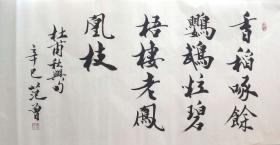 香稻啄餘
鸚鵡粒碧
梧棲老鳳
凰枝
杜甫秋興句
辛巳 范曾